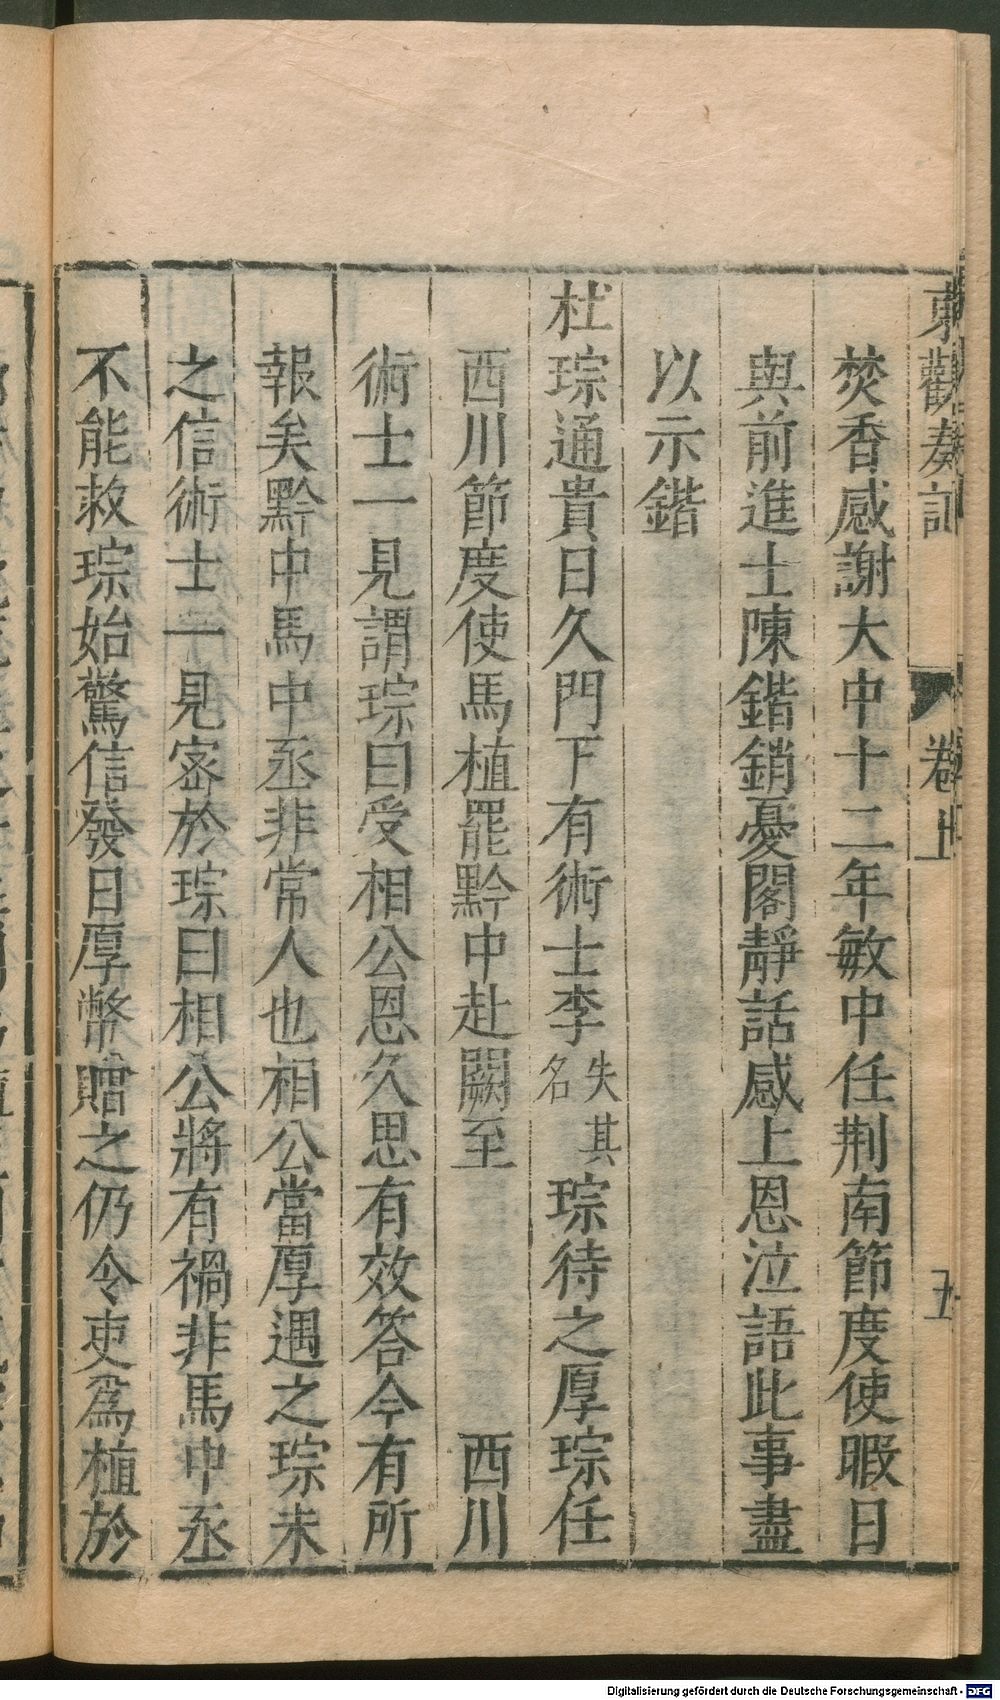 東觀奏記 卷上 五
焚香感謝大中十二年敏中任荆南節度使暇日
與前進士陳鍇銷憂閣靜話感上恩泣語此事盡
以示鍇
杜琮通貴日久門下有術士李失其名琮待之厚琮任
西川節度使馬植罷黔中赴闕至 西川
術士一見謂琮曰受相公恩久思有效答今有所
報矣黔中馬中丞非常人也相公當厚遇之琮未
之信術士一見密於琮曰相公將有禍非馬中丞
不能救琮始驚信發日厚幣贈之仍令吏爲植於
Digitalisierung gefördert durch die Deutsche Forschungsgemeinschaft - DFG